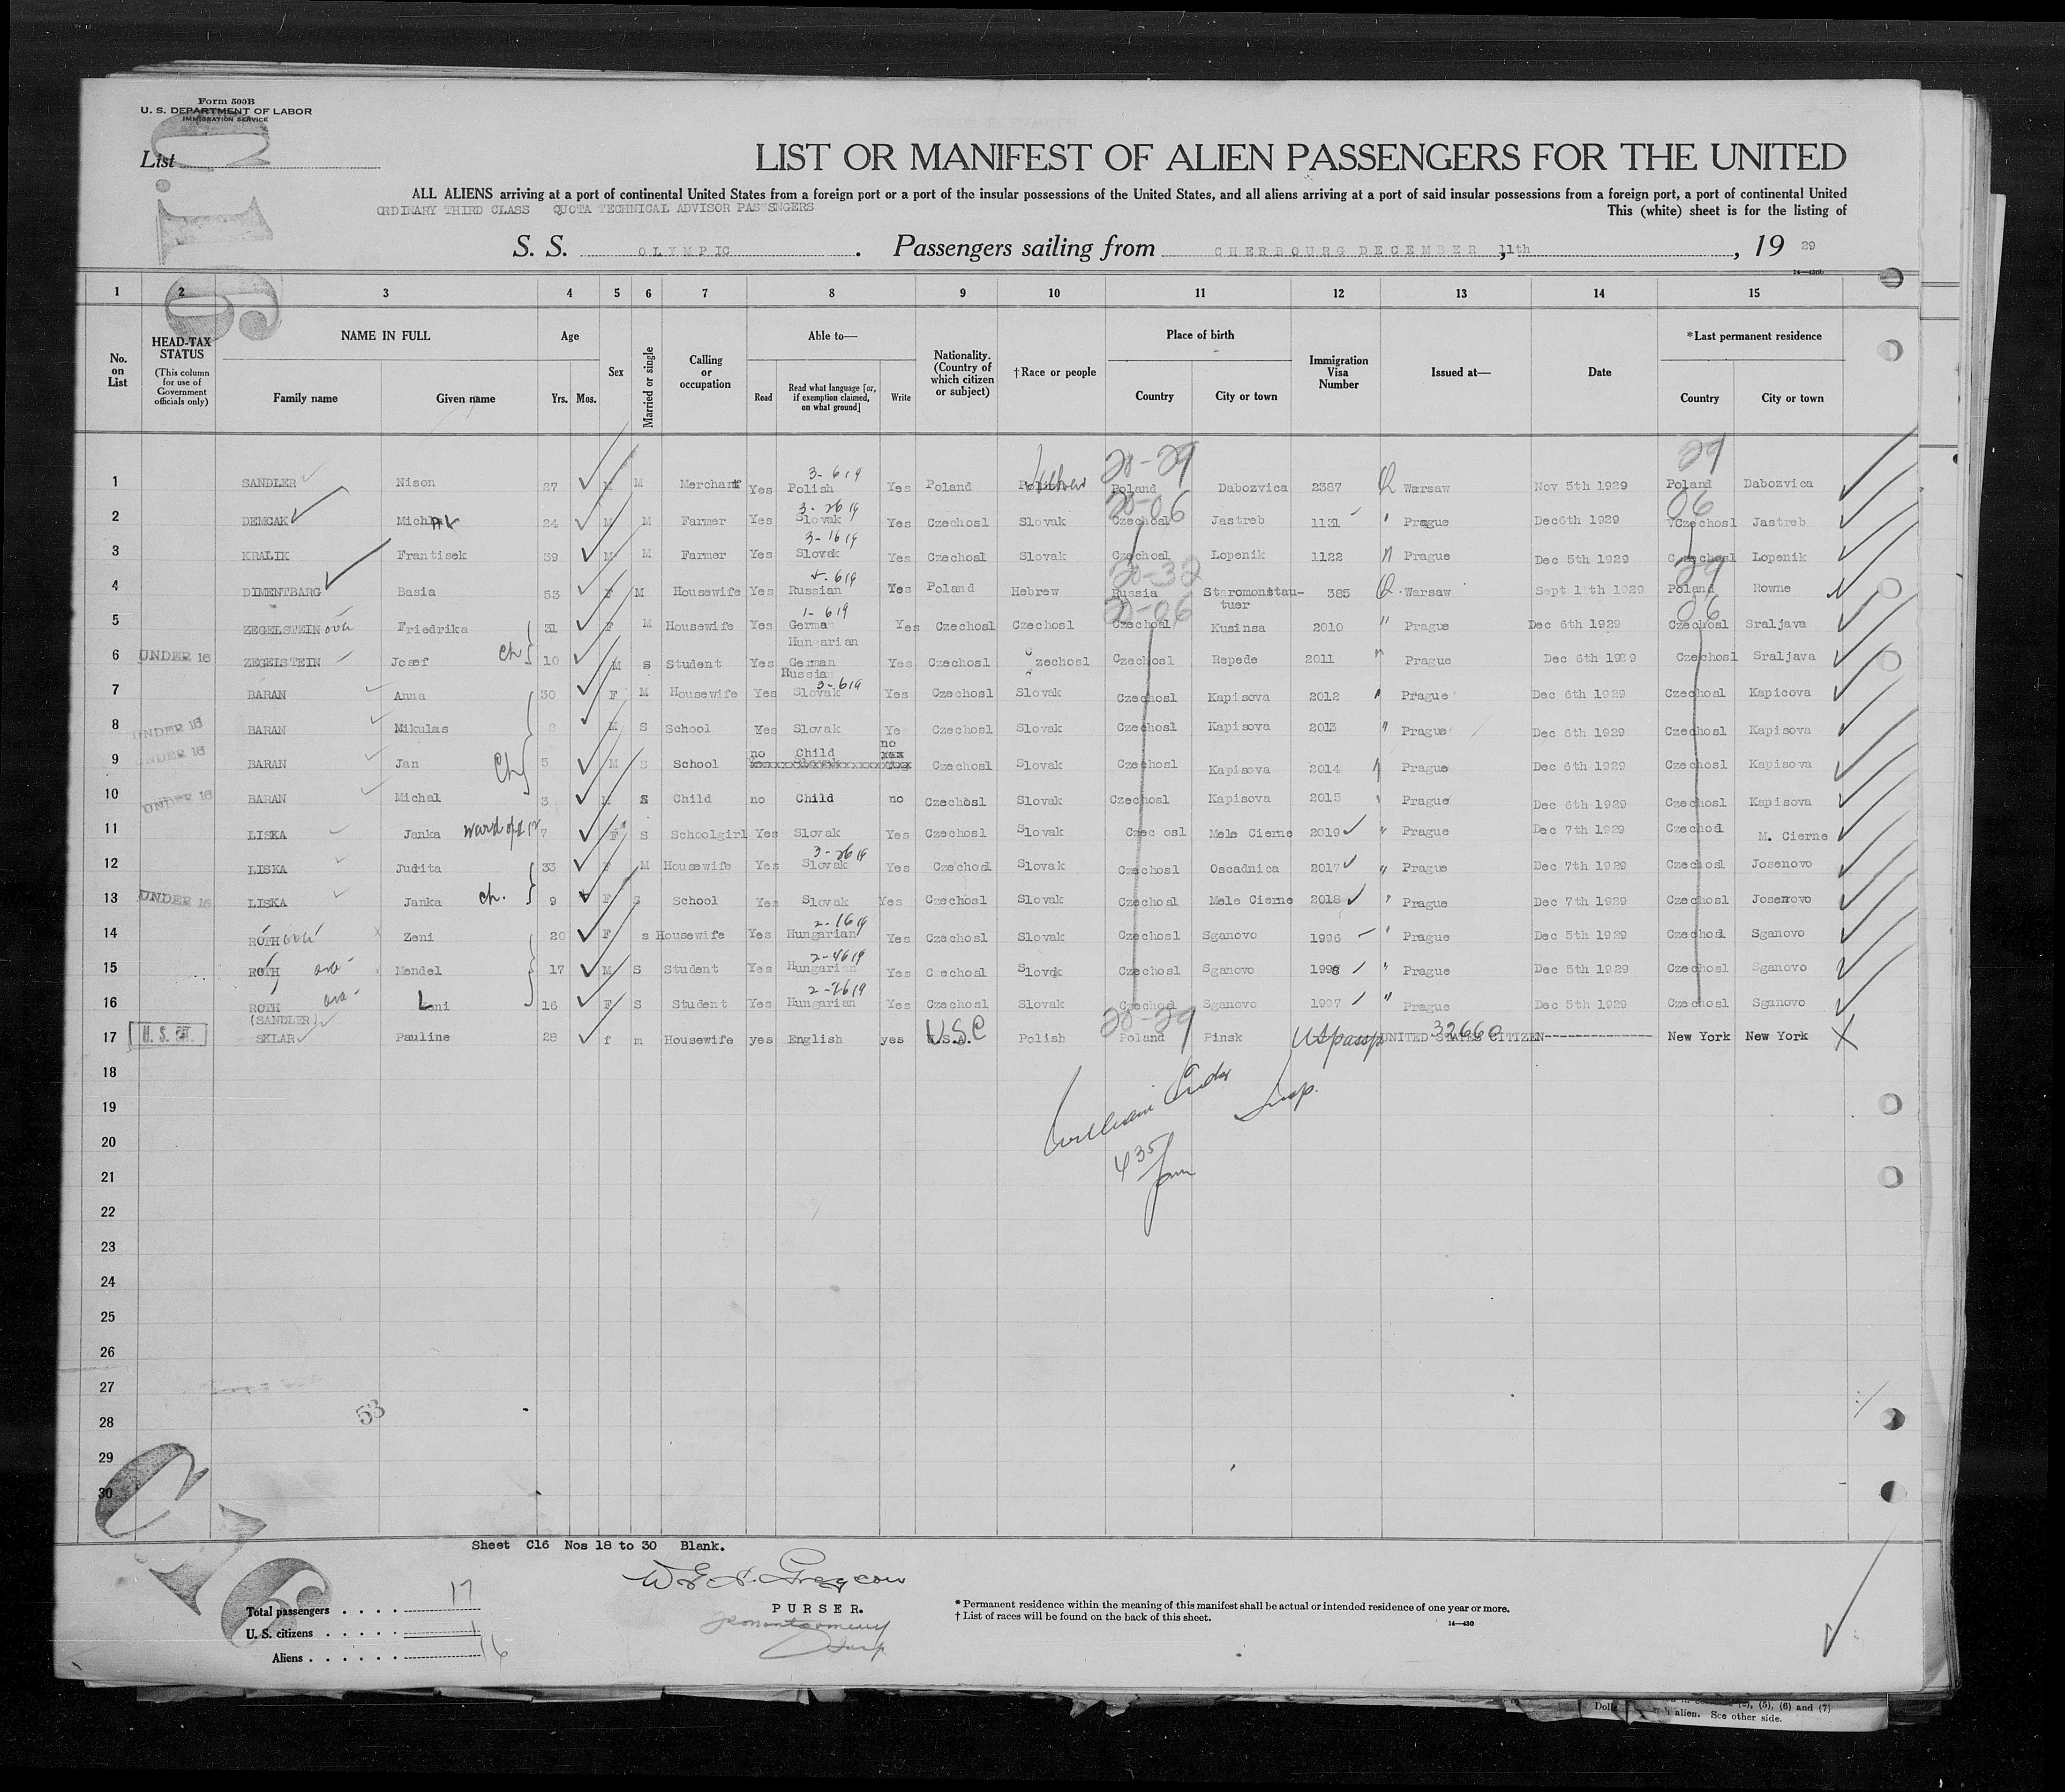 Form 500B
U. S. DEPARTMENT OF LABOR
IMMIGRATION SERVICE
List
LIST OR MANIFEST OF ALIEN PASSENGERS FOR THE UNITED
ALL ALIENS arriving at a port of continental United States from a foreign port or a port of the insular possessions of the United States, and all aliens arriving at a port of said insular possessions from a foreign port, a port of continental United
ORDINARY THIRD CLASS QUOTA TECHNICAL ADVISOR PASSENGERS
This (white) sheet is for the listing of
S. S. OLYMPIC. Passengers sailing from CHERBOURG DECEMBER, 11th, 19 29
14—430b
1 2 3 4 5 6 7 8 9 10 11 12 13 14 15
No. on List
HEAD-TAX STATUS (This column for use of Government officials only)
NAME IN FULL Family name Given name
Age Yrs. Mos.
Sex
Married or single
Calling or occupation
Able to— Read Read what language [or, if exemption claimed, on what ground] Write
Nationality. (Country of which citizen or subject)
†Race or people
Place of birth Country City or town
Immigration Visa Number
Issued at—
Date
*Last permanent residence Country City or town
20-29 29
1 SANDLER Nison 27 M M Merchant Yes 3-619 Polish Yes Poland Hebrew Poland Dabozvica 2387 Q Warsaw Nov 5th 1929 Poland Dabozvica
20-06 06
2 DEMCAK 24 M M Farmer Yes Slovak Yes Czechosl Slovak Czechosl Jastreb 1131 " Prague Dec6th 1929 Czechosl Jastreb
3 KRALIK Frantisek 39 M M Farmer Yes 3-1619 Slovak Yes Czechosl Slovak Czechosl Lopenik 1122 " Prague Dec 5th 1929 Czechosl Lopenik
20-32 29
4 DIMENTBARG Basia 53 F M Housewife Yes Russian Yes Poland Hebrew Russia Staromonstau-tuer 385 Q Warsaw Sept 11th 1929 Poland Rowne
20-06 06
5 ZEGELSTEIN Friedrika 31 F M Housewife Yes 1-619 German Hungarian Yes Czechosl Czechosl Czechosl Kusinsa 2010 " Prague Dec 6th 1929 Czechosl Sraljava
6 UNDER 16 ZEGELSTEIN Josef ch 10 M s Student Yes German Russian Yes Czechosl Czechosl Czechosl Repede 2011 " Prague Dec 6th 1929 Czechosl Sraljava
7 BARAN Anna 30 F M Housewife Yes 3-619 Slovak Yes Czechosl Slovak Czechosl Kapisova 2012 " Prague Dec 6th 1929 Czechosl Kapicova
8 UNDER 16 BARAN Mikulas 8 M S School Yes Slovak Ye Czechosl Slovak Czechosl Kapisova 2013 " Prague Dec 6th 1929 Czechosl Kapisova
9 UNDER 16 BARAN Jan ch 5 M S School no Child no Czechosl Slovak Czechosl Kapisova 2014 " Prague Dec 6th 1929 Czechosl Kapisova
10 UNDER 16 BARAN Michal 3 M S Child no Child no Czechosl Slovak Czechosl Kapisova 2015 " Prague Dec 6th 1929 Czechosl Kapisova
11 LISKA Janka ward of #12 7 F S Schoolgirl Yes Slovak Yes Czechosl Slovak Czec osl Mele Cierne 2019 " Prague Dec 7th 1929 Czechosl M. Cierne
12 LISKA Judita 33 F M Housewife Yes Slovak Yes Czechosl Slovak Czechosl Oscadnica 2017 " Prague Dec 7th 1929 Czechosl Josenovo
13 UNDER 16 LISKA Janka ch. 9 F S School Yes Slovak Yes Czechosl Slovak Czechosl Mele Cierne 2018 " Prague Dec 7th 1929 Czechosl Josenovo
14 ROTH Zeni 20 F s Housewife Yes 2-1619 Hungarian Yes Czechosl Slovak Czechosl Sganovo 1996 " Prague Dec 5th 1929 Czechosl Sganovo
15 ROTH Mendel 17 M S Student Yes 2-4619 Hungarian Yes Czechosl Slovak Czechosl Sganovo 1998 " Prague Dec 5th 1929 Czechosl Sganovo
16 ROTH Leni 16 F S Student Yes Hungarian Yes Czechosl Slovak Czechosl Sganovo 1997 " Prague Dec 5th 1929 Czechosl Sganovo
(SANDLER) 20-29
17 U. S. CIT. SKLAR Pauline 28 f m Housewife yes English yes U.S.A. USC Polish Poland Pinsk US passp 32660 UNITED STATES CITIZEN New York New York X
18
William Insp.
19
20
435
21
pm
22
23
24
25
26
27
28 53
29
30
C16
Sheet C16 Nos 18 to 30 Blank.
PURSER.
Insp
Total passengers . . . . 17
U. S. citizens . . . . . 1
Aliens . . . . . . 16
* Permanent residence within the meaning of this manifest shall be actual or intended residence of one year or more.
† List of races will be found on the back of this sheet.
14—430
(5), (6) and (7)
alien. See other side.